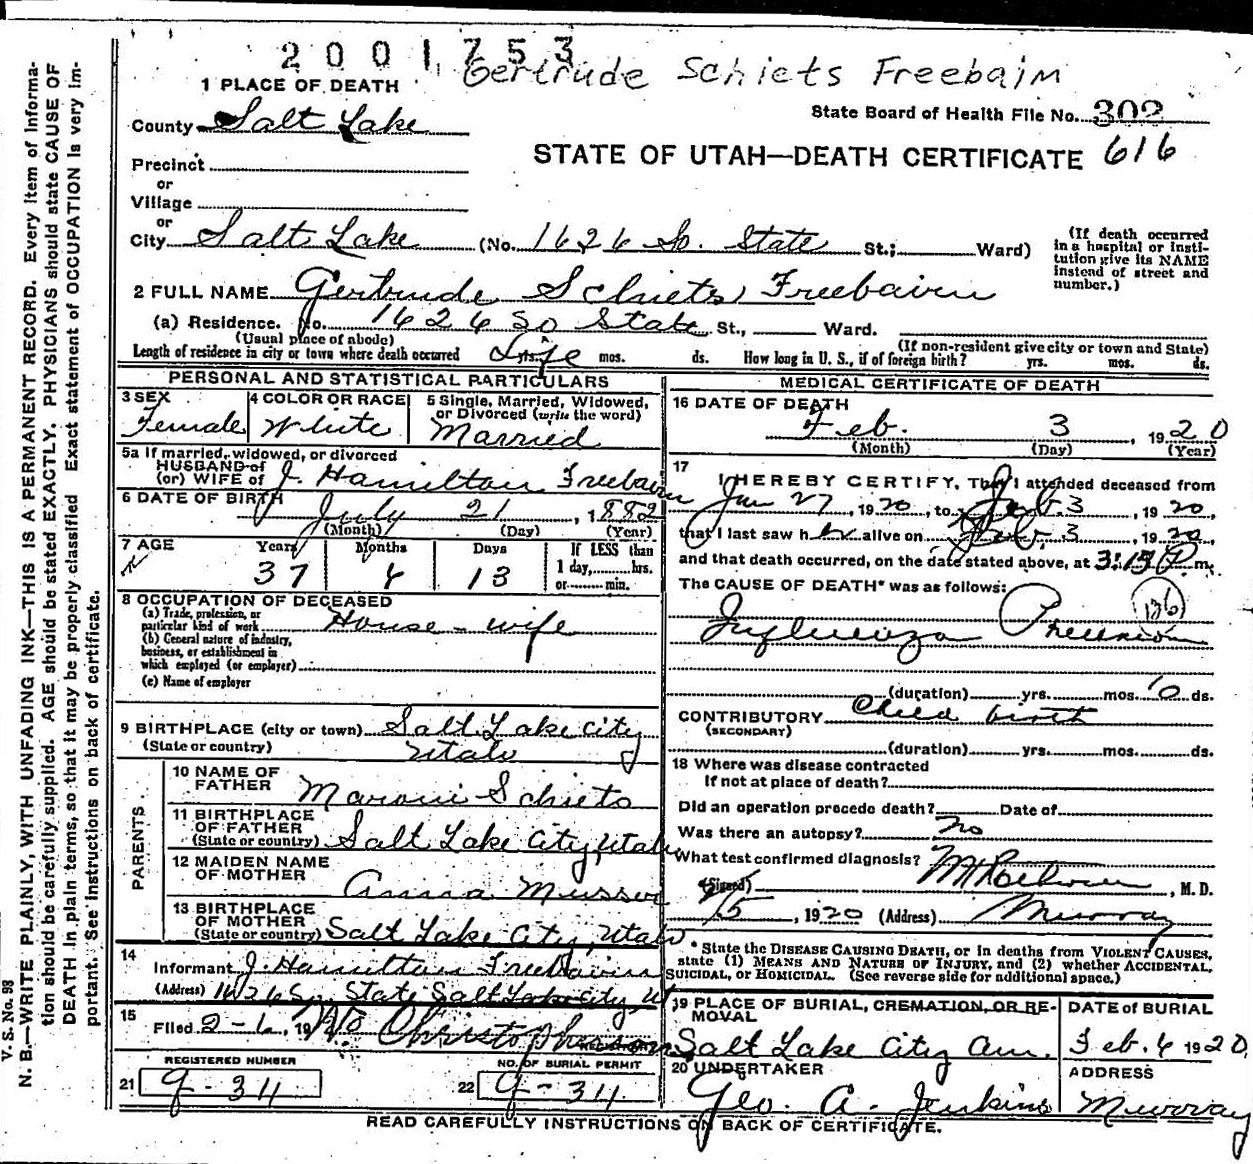 2001753
Gertrude Schiets Freebairn
1 PLACE OF DEATH
State Board of Health File No. 302
County Salt Lake
STATE OF UTAH—DEATH CERTIFICATE 616
Precinct
or
Village
or
City Salt Lake (No. 1626 So. State St.; Ward)
(If death occurred in a hospital or institution give its NAME instead of street and number.)
2 FULL NAME Gertrude Schiets Freebairn
(a) Residence. No. 1626 So State St., Ward.
(Usual place of abode) (If non-resident give city or town and State)
Length of residence in city or town where death occurred Life yrs. mos. ds. How long in U. S., if of foreign birth? yrs. mos. ds.
PERSONAL AND STATISTICAL PARTICULARS
3 SEX Female
4 COLOR OR RACE White
5 Single, Married, Widowed, or Divorced (write the word) Married
5a If married, widowed, or divorced
HUSBAND of
(or) WIFE of J. Hamilton Freebairn
6 DATE OF BIRTH July 21, 1882
(Month) (Day) (Year)
7 AGE Years 37 Months 6 Days 13
If LESS than 1 day, hrs. or min.
8 OCCUPATION OF DECEASED
(a) Trade, profession, or particular kind of work House-wife
(b) General nature of industry, business, or establishment in which employed (or employer)
(c) Name of employer
9 BIRTHPLACE (city or town) Salt Lake City
(State or country) Utah
PARENTS
10 NAME OF FATHER Maroni Schiets
11 BIRTHPLACE OF FATHER (State or country) Salt Lake City, Utah
12 MAIDEN NAME OF MOTHER Anna Musser
13 BIRTHPLACE OF MOTHER (State or country) Salt Lake City, Utah
14 Informant J. Hamilton Freebairn
(Address) 1626 So. State Salt Lake City, Ut
15 Filed 2-6, 19 Christopherson
REGISTRAR
REGISTERED NUMBER
21 9-311
NO. OF BURIAL PERMIT
22 9-311
MEDICAL CERTIFICATE OF DEATH
16 DATE OF DEATH
Feb. 3, 1920
(Month) (Day) (Year)
17 I HEREBY CERTIFY, That I attended deceased from
Jan 27, 1920, to Feb. 3, 1920,
that I last saw her alive on Feb. 3, 1920,
and that death occurred, on the date stated above, at 3:15 P m.
The CAUSE OF DEATH* was as follows:
Influenza Pneumonia
(duration) yrs. mos. 10 ds.
CONTRIBUTORY Child birth
(SECONDARY)
(duration) yrs. mos. ds.
18 Where was disease contracted
If not at place of death?
Did an operation precede death? Date of
Was there an autopsy? No
What test confirmed diagnosis?
(Signed) , M. D.
2/5, 1920 (Address) Murray
* State the DISEASE CAUSING DEATH, or in deaths from VIOLENT CAUSES, state (1) MEANS AND NATURE OF INJURY, and (2) whether ACCIDENTAL, SUICIDAL, or HOMICIDAL. (See reverse side for additional space.)
19 PLACE OF BURIAL, CREMATION, OR REMOVAL Salt Lake City Cem.
DATE OF BURIAL Feb. 6 1920
20 UNDERTAKER Geo. A. Jenkins
ADDRESS Murray
READ CAREFULLY INSTRUCTIONS ON BACK OF CERTIFICATE.
V. S. No. 98
N. B.—WRITE PLAINLY, WITH UNFADING INK—THIS IS A PERMANENT RECORD. Every item of information should be carefully supplied. AGE should be stated EXACTLY. PHYSICIANS should state CAUSE OF DEATH in plain terms, so that it may be properly classified. Exact statement of OCCUPATION is very important. See instructions on back of certificate.